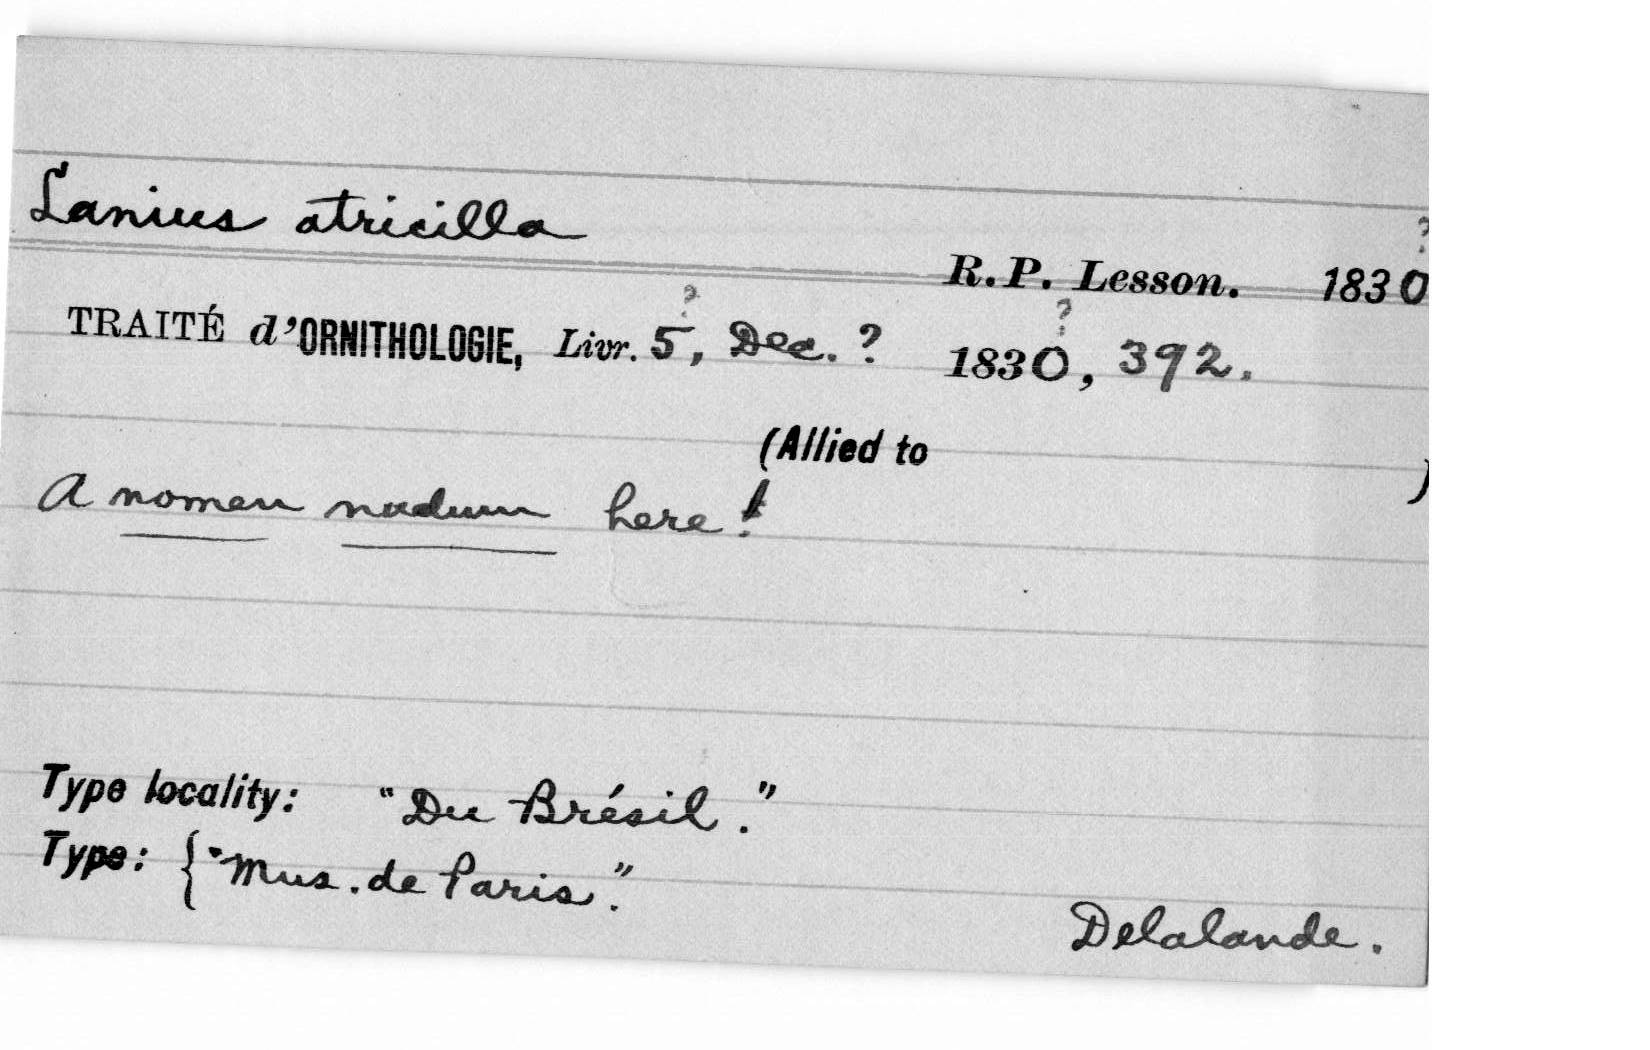 Lanius atricilla
R. P. Lesson. 1830?
TRAITÉ d'ORNITHOLOGIE, Livr. 5?, Dec. ? 1830?, 392.
(Allied to )
A nomen nudum here!
Type locality: "Du Brésil."
Type: {"Mus. de Paris."
Delalande.